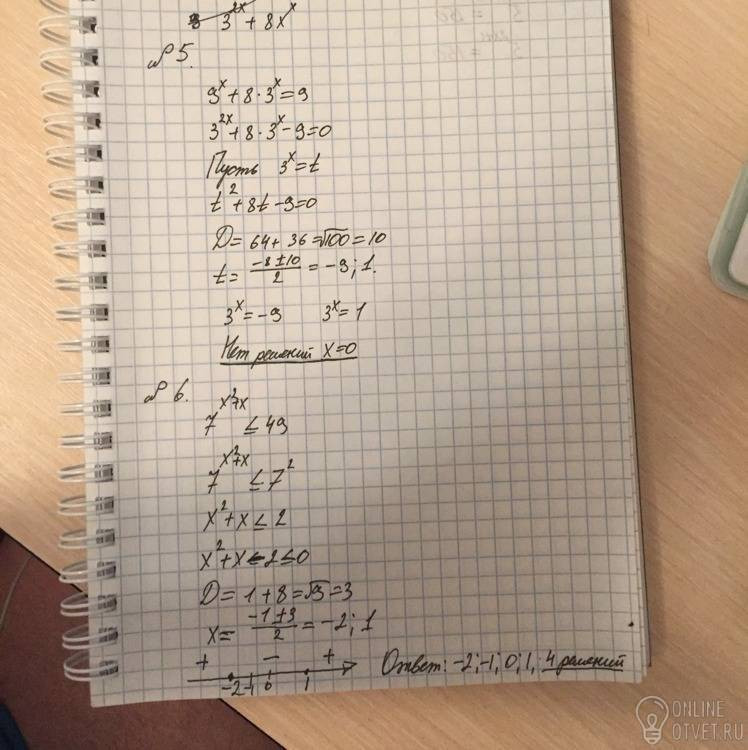 3^{2x} + 8x^x
№5.
9^x + 8 · 3^x = 9
3^{2x} + 8 · 3^x - 9 = 0
Пусть 3^x = t
t^2 + 8t - 9 = 0
D = 64 + 36 = √100 = 10
t = (-8 ± 10)/2 = -9; 1.
3^x = -9 3^x = 1
Нет решений x = 0
№6.
7^{x^2+x} ≤ 49
7^{x^2+x} ≤ 7^2
x^2 + x ≤ 2
x^2 + x - 2 ≤ 0
D = 1 + 8 = √9 = 3
x = (-1 ± 3)/2 = -2; 1
+ - +
-2 -1 0 1
Ответ: -2; -1; 0; 1, 4 решений
ONLINE
OTVET.RU